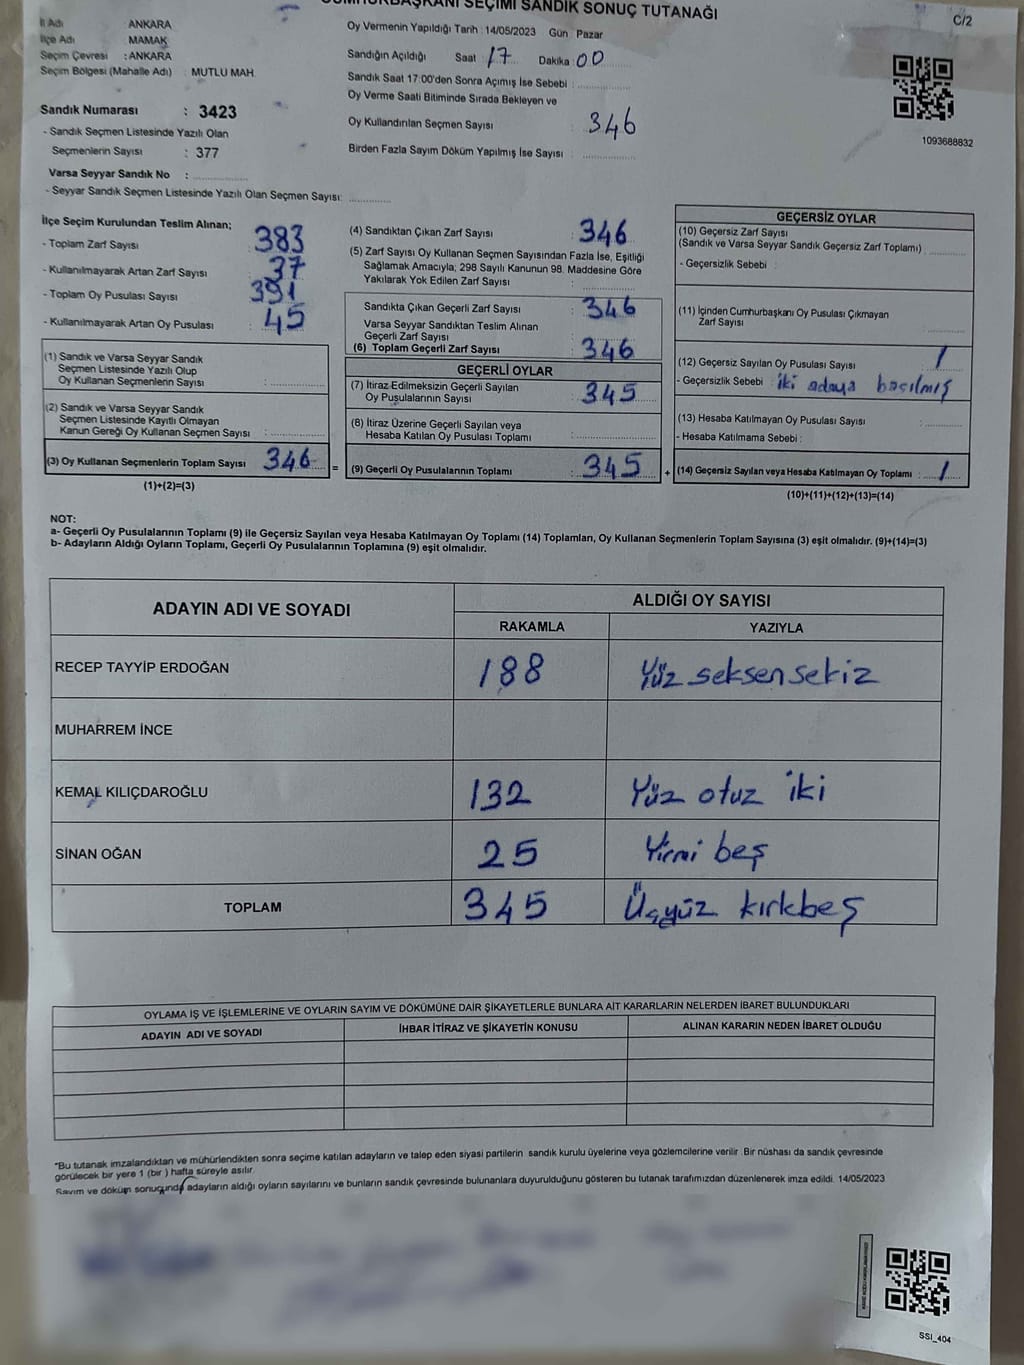 CUMHURBAŞKANI SEÇİMİ SANDIK SONUÇ TUTANAĞI
C/2
İl Adı ANKARA
İlçe Adı MAMAK
Seçim Çevresi : ANKARA
Seçim Bölgesi (Mahalle Adı) : MUTLU MAH.
Sandık Numarası : 3423
- Sandık Seçmen Listesinde Yazılı Olan
Seçmenlerin Sayısı : 377
Varsa Seyyar Sandık No : ..............
- Seyyar Sandık Seçmen Listesinde Yazılı Olan Seçmen Sayısı: ............
Oy Vermenin Yapıldığı Tarih : 14/05/2023 Gün Pazar
Sandığın Açıldığı Saat 17 Dakika : 00
Sandık Saat 17:00'den Sonra Açımış İse Sebebi : ..............
Oy Verme Saati Bitiminde Sırada Bekleyen ve
Oy Kullandırılan Seçmen Sayısı : 346
Birden Fazla Sayım Döküm Yapılmış İse Sayısı : ..............
1093688832
İlçe Seçim Kurulundan Teslim Alınan;
- Toplam Zarf Sayısı : 383
- Kullanılmayarak Artan Zarf Sayısı : 37
- Toplam Oy Pusulası Sayısı : 391
- Kullanılmayarak Artan Oy Pusulası : 45
(1) Sandık ve Varsa Seyyar Sandık
Seçmen Listesinde Yazılı Olup
Oy Kullanan Seçmenlerin Sayısı : ..............
(2) Sandık ve Varsa Seyyar Sandık
Seçmen Listesinde Kayıtlı Olmayan
Kanun Gereği Oy Kullanan Seçmen Sayısı : ..............
(3) Oy Kullanan Seçmenlerin Toplam Sayısı 346
(1)+(2)=(3)
=
(4) Sandıktan Çıkan Zarf Sayısı : 346
(5) Zarf Sayısı Oy Kullanan Seçmen Sayısından Fazla İse, Eşitliği
Sağlamak Amacıyla; 298 Sayılı Kanunun 98. Maddesine Göre
Yakılarak Yok Edilen Zarf Sayısı : ..............
Sandıkta Çıkan Geçerli Zarf Sayısı : 346
Varsa Seyyar Sandıktan Teslim Alınan
Geçerli Zarf Sayısı : ..............
(6) Toplam Geçerli Zarf Sayısı : 346
GEÇERLİ OYLAR
(7) İtiraz Edilmeksizin Geçerli Sayılan
Oy Pusulalarının Sayısı : 345
(8) İtiraz Üzerine Geçerli Sayılan veya
Hesaba Katılan Oy Pusulası Toplamı : ..............
(9) Geçerli Oy Pusulalarının Toplamı : 345
+
GEÇERSİZ OYLAR
(10) Geçersiz Zarf Sayısı
(Sandık ve Varsa Seyyar Sandık Geçersiz Zarf Toplamı) : ..............
- Geçersizlik Sebebi :
(11) İçinden Cumhurbaşkanı Oy Pusulası Çıkmayan
Zarf Sayısı : ..............
(12) Geçersiz Sayılan Oy Pusulası Sayısı : 1
- Geçersizlik Sebebi : iki adaya basılmış
(13) Hesaba Katılmayan Oy Pusulası Sayısı : ..............
- Hesaba Katılmama Sebebi :
(14) Geçersiz Sayılan veya Hesaba Katılmayan Oy Toplamı : 1
(10)+(11)+(12)+(13)=(14)
NOT:
a- Geçerli Oy Pusulalarının Toplamı (9) ile Geçersiz Sayılan veya Hesaba Katılmayan Oy Toplamı (14) Toplamları, Oy Kullanan Seçmenlerin Toplam Sayısına (3) eşit olmalıdır. (9)+(14)=(3)
b- Adayların Aldığı Oyların Toplamı, Geçerli Oy Pusulalarının Toplamına (9) eşit olmalıdır.
ADAYIN ADI VE SOYADI
ALDIĞI OY SAYISI
RAKAMLA YAZIYLA
RECEP TAYYİP ERDOĞAN 188 Yüz seksen sekiz
MUHARREM İNCE
KEMAL KILIÇDAROĞLU 132 Yüz otuz iki
SİNAN OĞAN 25 Yirmi beş
TOPLAM 345 Üçyüz kırkbeş
OYLAMA İŞ VE İŞLEMLERİNE VE OYLARIN SAYIM VE DÖKÜMÜNE DAİR ŞİKAYETLERLE BUNLARA AİT KARARLARIN NELERDEN İBARET BULUNDUKLARI
ADAYIN ADI VE SOYADI İHBAR İTİRAZ VE ŞİKAYETİN KONUSU ALINAN KARARIN NEDEN İBARET OLDUĞU
"Bu tutanak imzalandıktan ve mühürlendikten sonra seçime katılan adayların ve talep eden siyasi partilerin sandık kurulu üyelerine veya gözlemcilerine verilir. Bir nüshası da sandık çevresinde
görülecek bir yere 1 (bir ) hafta süreyle asılır.
Sayım ve döküm sonucunda adayların aldığı oyların sayılarını ve bunların sandık çevresinde bulunanlara duyurulduğunu gösteren bu tutanak tarafımızdan düzenlenerek imza edildi. 14/05/2023
SSI_404